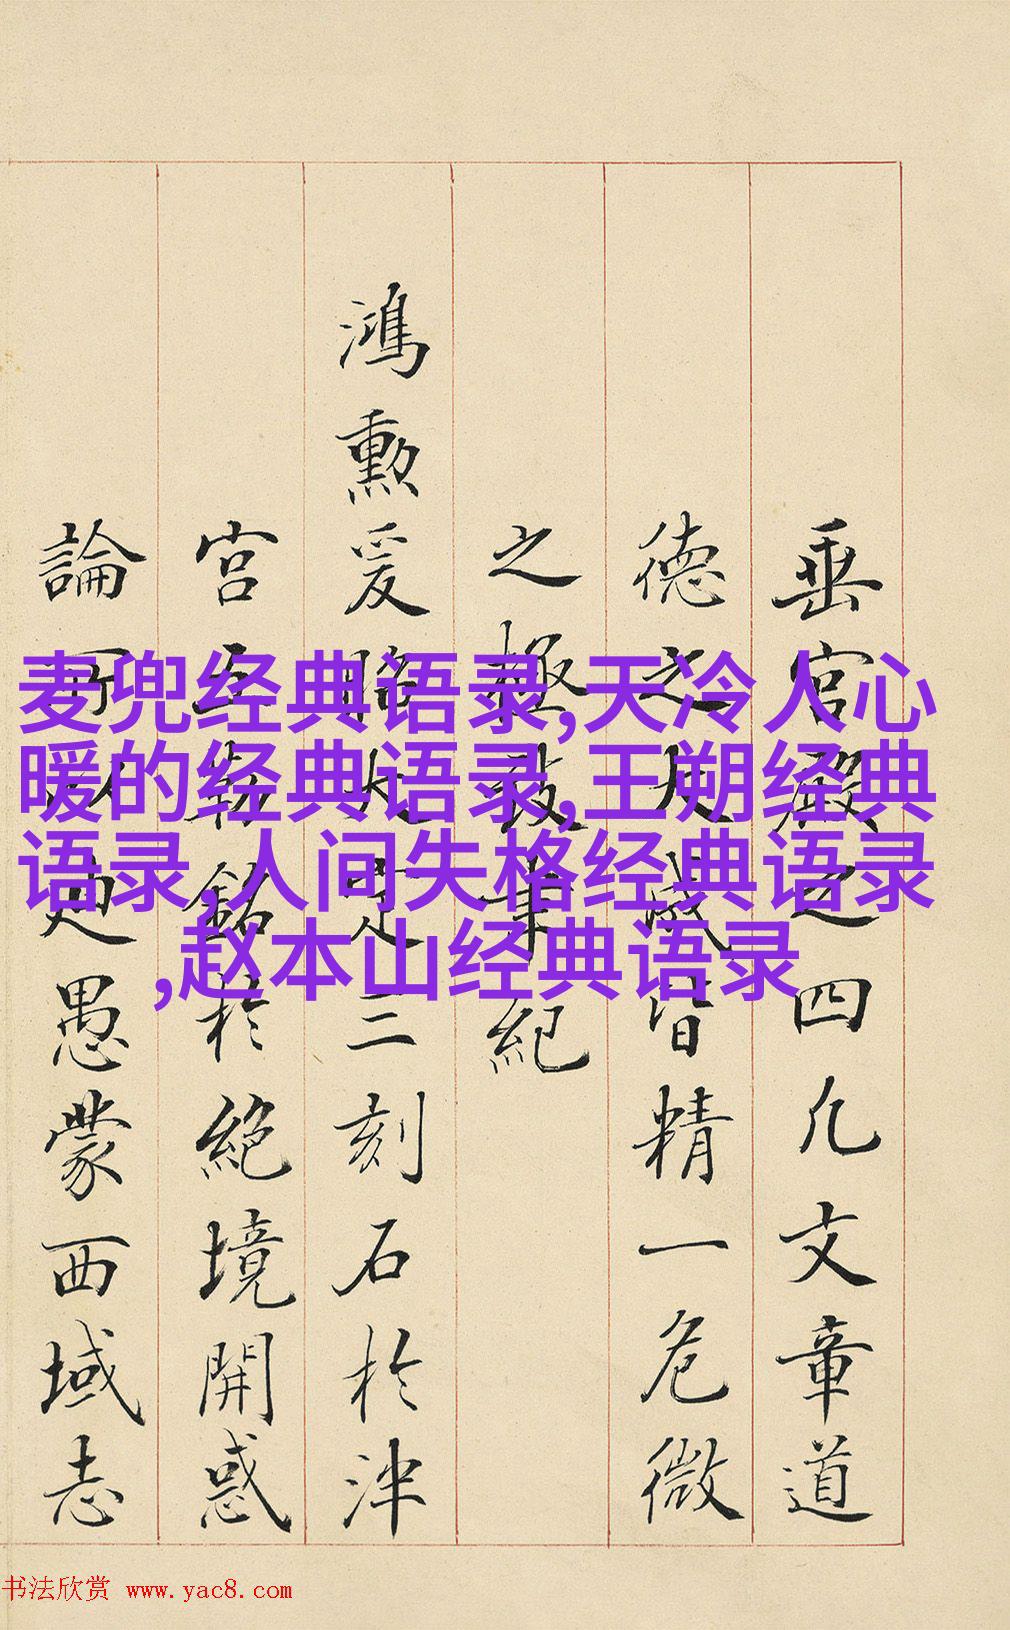 麦兜经典语录,天冷人心
暖的经典语录,王朔经典
语录,人间失格经典语录
,赵本山经典语录
垂宫殿之四几文章道
德之大成皆精一危微
之極紀
鴻勲爰定三刻石於津
宫勒銘於絶境開惑
論所以迪愚蒙西域志
书法欣赏 www.yac8.com